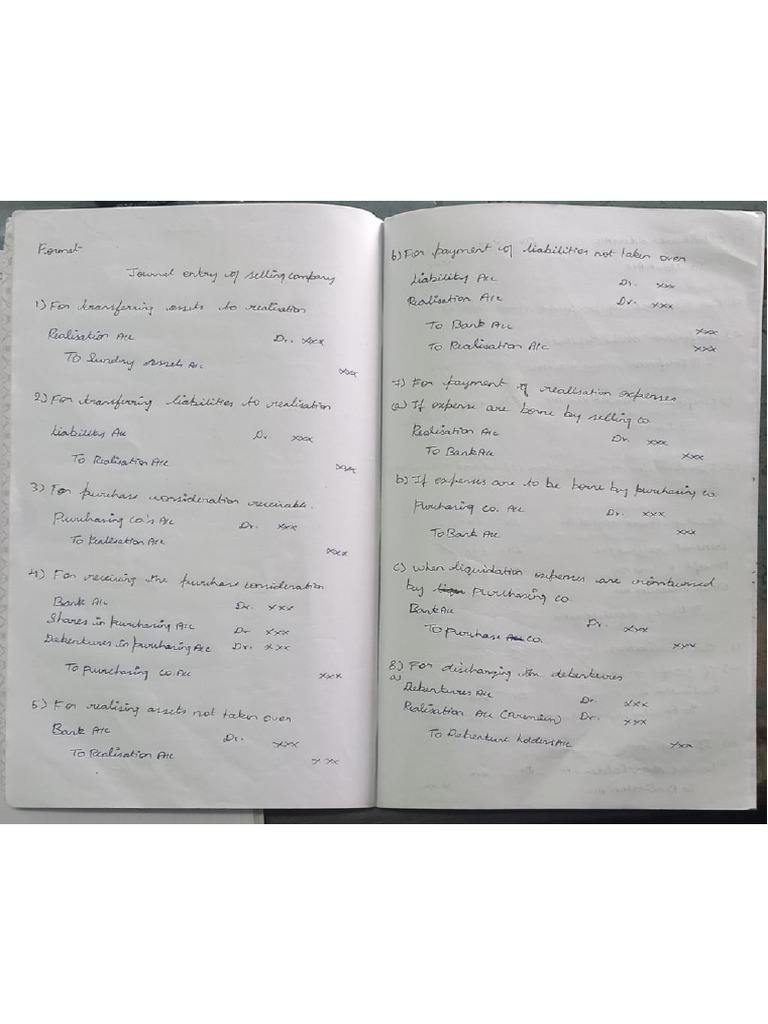 Format
Journal entry of selling company
1) For transferring assets to realisation
Realisation A/c Dr. xxx
To Sundry Assets A/c xxx
2) For transferring liabilities to realisation
Liability A/c Dr xxx
To Realisation A/c xxx
3) For purchase consideration receivable.
Purchasing co's A/c Dr. xxx
To Realisation A/c xxx
4) For receiving the purchase consideration
Bank A/c Dr. xxx
Shares in purchasing A/c Dr xxx
Debentures in purchasing A/c Dr. xxx
To purchasing co. A/c xxx
5) For realising assets not taken over
Bank A/c Dr. xxx
To Realisation A/c xxx
6) For payment of liabilities not taken over
Liability A/c Dr. xxx
Realisation A/c Dr. xxx
To Bank A/c xxx
To Realisation A/c xxx
7) For payment of realisation expenses
(a) If expense are borne by selling co.
Realisation A/c Dr. xxx
To Bank A/c xxx
b) If expenses are to be borne by purchasing co.
Purchasing co. A/c Dr. xxx
To Bank A/c xxx
c) when liquidation expenses are reimbursed
by purchasing co
Bank A/c Dr. xxx
To purchase co. xxx
8) For discharging the debentures
a)
Debentures A/c Dr xxx
Realisation A/c (Premium) Dr. xxx
To Debenture holders A/c xxx